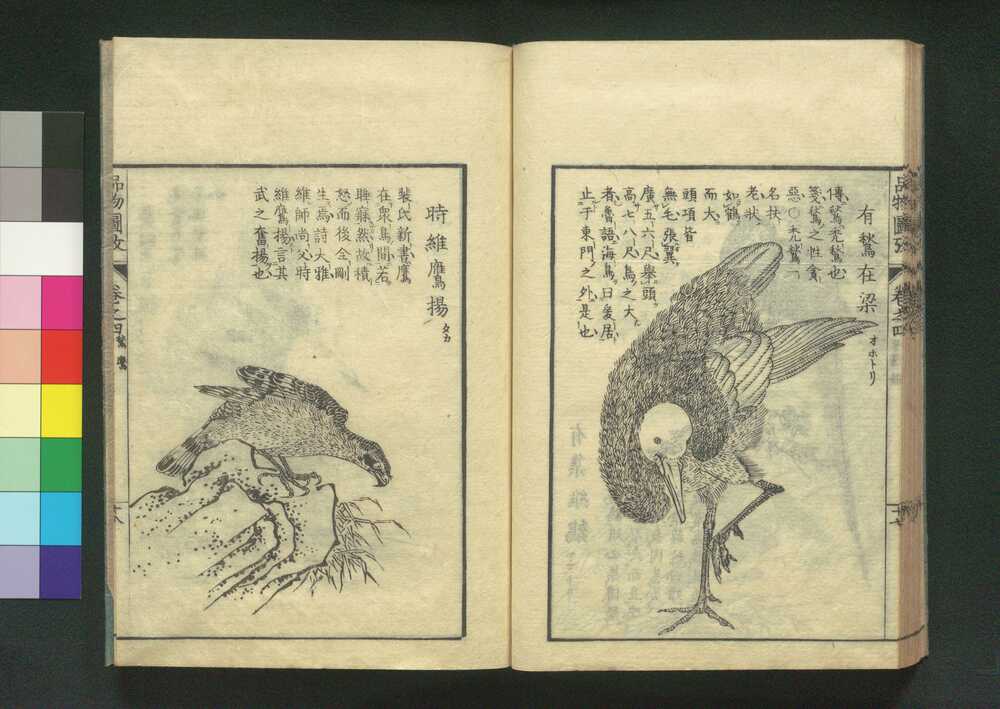 有鶖在梁
オホトリ
傳鶖禿鶖也
箋鶖之性貪
惡〇禿鶖一
名扶
老狀
如鶴
而大
頭項皆
無毛張翼
廣五六尺舉頭
高七八尺鳥之大
者魯語海鳥曰爰居
止于東門之外是也
品物圖攷
卷之四
時維鷹揚
タカ
裴氏新書鷹
在衆鳥間若
睡寐然故積
怒而後全剛
生焉詩大雅
維師尚父時
維鷹揚言其
武之奮揚也
品物圖攷
卷之四
鶖鷹
十八